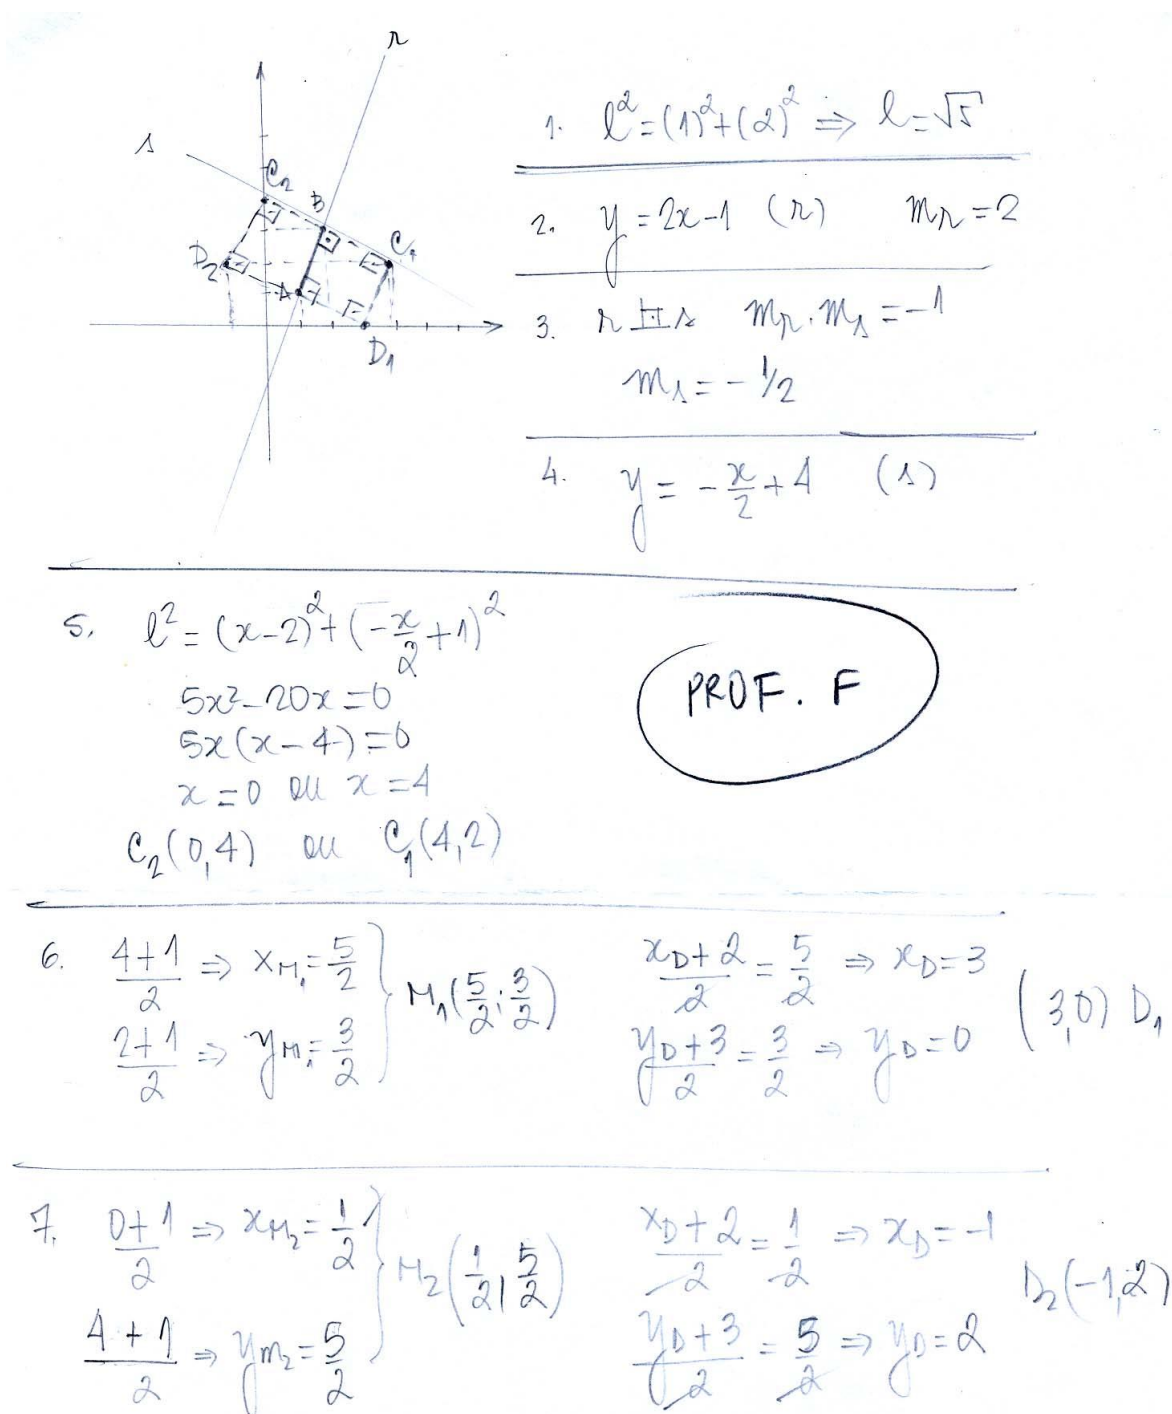 r
s
C₂
B
C₁
D₂
A
D₁
1. l² = (1)² + (2)² ⇒ l = √5
2. y = 2x-1 (r) mr = 2
3. r ⊥ s mr . ms = -1
ms = - 1/2
4. y = - x/2 + 4 (s)
5. l² = (x-2)² + (-x/2 + 1)²
5x² - 20x = 0
5x(x-4) = 0
x = 0 ou x = 4
C₂(0,4) ou C₁(4,2)
PROF. F
6. (4+1)/2 ⇒ xM₁ = 5/2 } M₁(5/2; 3/2) (xD+2)/2 = 5/2 ⇒ xD = 3
(2+1)/2 ⇒ yM₁ = 3/2 (yD+3)/2 = 3/2 ⇒ yD = 0 (3,0) D₁
7. (0+1)/2 ⇒ xM₂ = 1/2 } M₂(1/2, 5/2) (xD+2)/2 = 1/2 ⇒ xD = -1
(4+1)/2 ⇒ ym₂ = 5/2 (yD+3)/2 = 5/2 ⇒ yD = 2 D₂(-1,2)